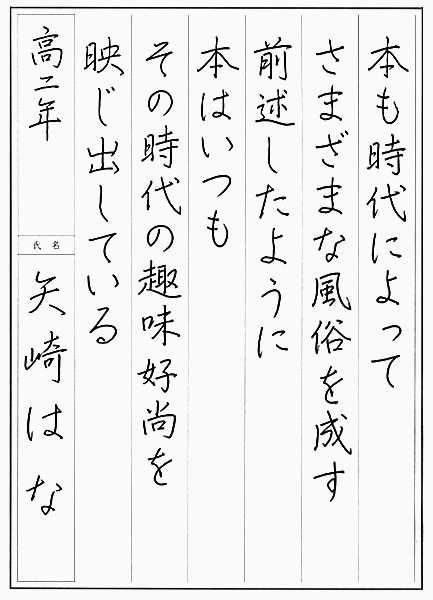 本も時代によって
さまざまな風俗を成す
前述したように
本はいつも
その時代の趣味好尚を
映じ出している
高二年
氏名
矢崎はな